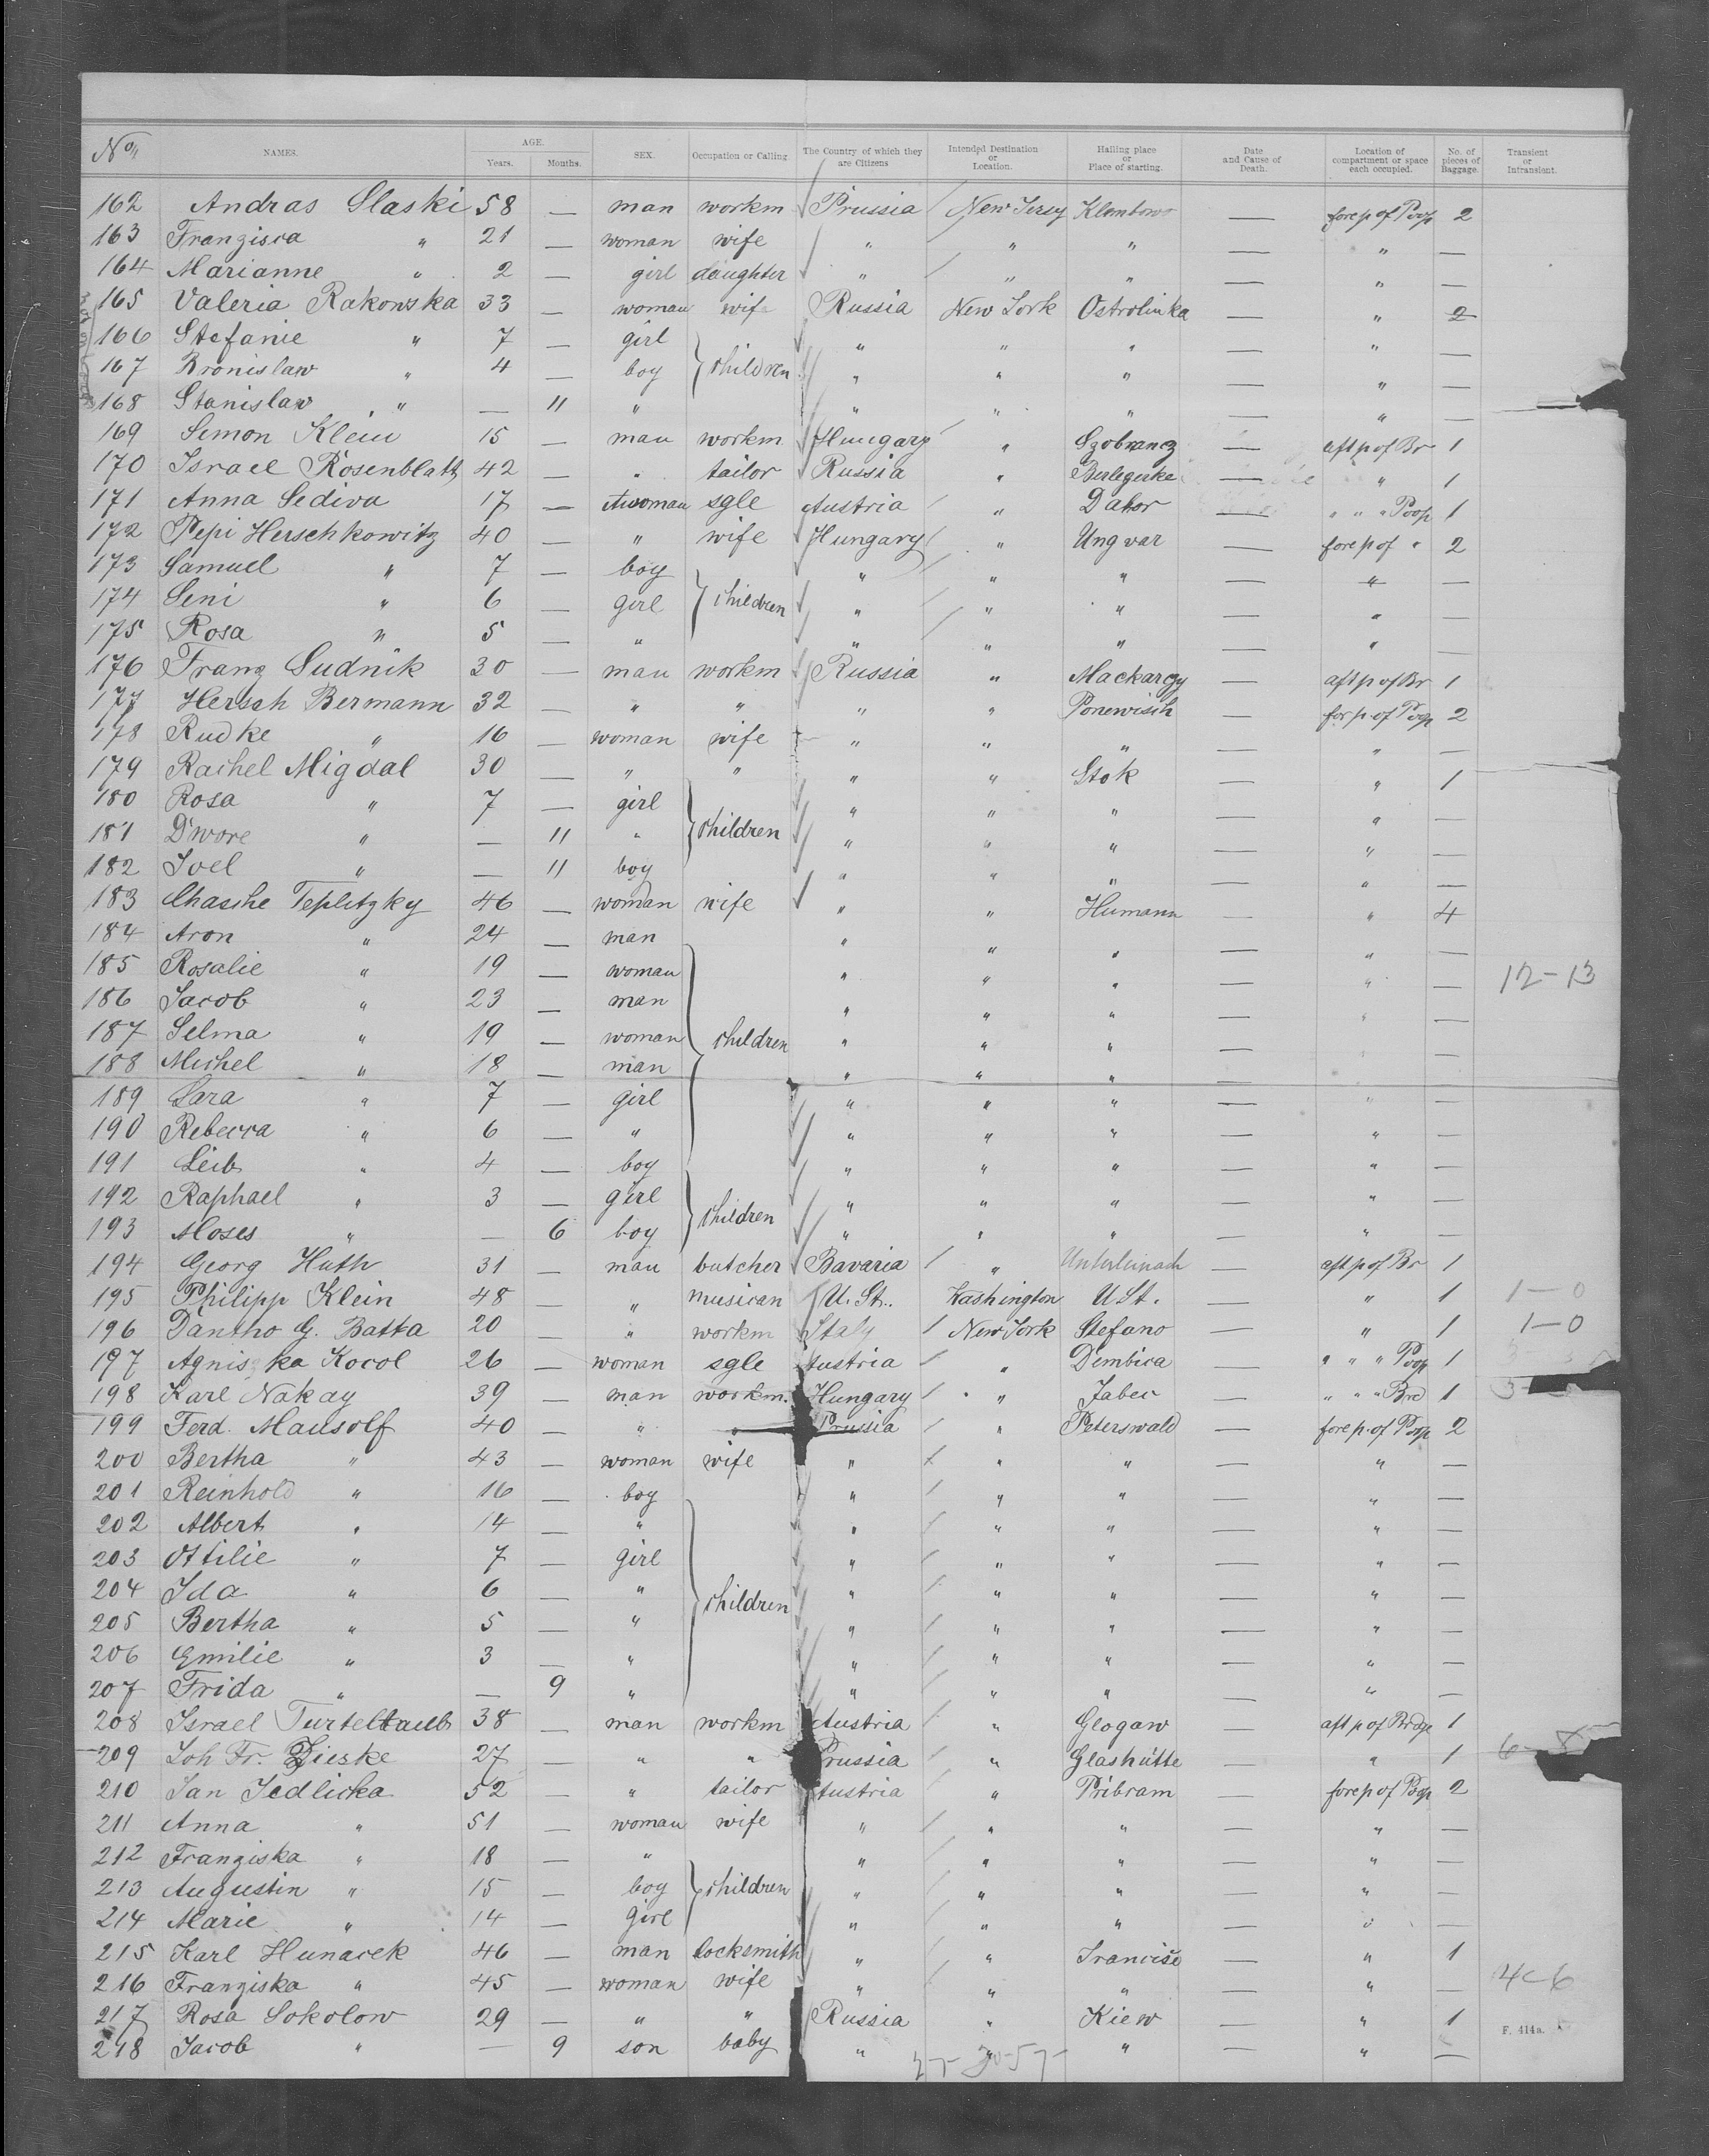 No. NAMES. AGE. Years. Months. SEX. Occupation or Calling The Country of which they are Citizens Intended Destination or Location. Hailing place or Place of starting. Date and Cause of Death. Location of compartment or space each occupied. No. of pieces of Baggage. Transient or Intransient.
162 Andras Slaski 58 — man workm Prussia New Jersy Klonbowo — fore p of Poop 2
163 Franzisca " 21 — woman wife " " " — " —
164 Marianne " 2 — girl daughter " " " — " —
165 Valeria Rakowska 33 — woman wife Russia New York Ostrolinka — " 2
166 Stefanie " 7 — girl " " " — " —
167 Bronislaw " 4 — boy } children " " " — " —
168 Stanislaw " — 11 " " " " — " —
169 Simon Klein 15 — man workm Hungary " Szobrancz — aft p of Br 1
170 Israel Rosenblatt 42 — " tailor Russia " — " 1
171 Anna Sediva 17 — woman sgle Austria " — " " " Poop 1
172 Pepi Herschkowitz 40 — " wife Hungary " Ungvar — fore p of " 2
173 Samuel " 7 — boy " " " — " —
174 Seni " 6 — girl } children " " " — " —
175 Rosa " 5 — " " " " — " —
176 Franz Sudnik 30 — man workm Russia " Mackarcy — aft p of Br 1
177 Hersch Bermann 32 — " " " " Ponewisch — for p of Poop 2
178 Rudke " 16 — woman wife " " " — " —
179 Rachel Migdal 30 — " " " " Stok — " 1
180 Rosa " 7 — girl " " " — " —
181 Dwore " — 11 " } children " " " — " —
182 Joel " — 11 boy " " " — " —
183 Chasche Teplitzky 46 — woman wife " " Humann — " 4
184 Aron " 24 — man " " " — " —
185 Rosalie " 19 — woman " " " — " — 12-13
186 Jacob " 23 — man " " " — " —
187 Selma " 19 — woman children " " " — " —
188 Michel " 18 — man " " " — " —
189 Sara " 7 — girl " " " — " —
190 Rebecca " 6 — " " " " — " —
191 Leib " 4 — boy " " " — " —
192 Raphael " 3 — girl } children " " " — " —
193 Moses " — 6 boy " " " — " —
194 Georg Huth 31 — man butcher Bavaria " Unterleinach — aft p of Br 1
195 Philipp Klein 48 — " musican U. St. Washington U St. — " 1 1-0
196 Dantho G. Batta 20 — " workm Italy New York Stefano — " 1 1-0
197 Agniszka Kocol 26 — woman sgle Austria " Dembica — " " " Poop 1
198 Karl Nakay 39 — man workm. Hungary " Jabec — " " " Brd 1
199 Ferd. Mausolf 40 — " " Prussia " Peterswald — fore p. of Poop 2
200 Bertha " 43 — woman wife " " " — " —
201 Reinhold " 16 — boy " " " — " —
202 Albert " 14 — " " " " — " —
203 Ottilie " 7 — girl " " " — " —
204 Ida " 6 — " } children " " " — " —
205 Bertha " 5 — " " " " — " —
206 Emilie " 3 — " " " " — " —
207 Frida " — 9 " " " " — " —
208 Israel Turteltaub 38 — man workm Austria " Glogaw — aft p of Brdge 1
209 Joh Fr. Zieske 27 — " " Prussia " Glashütte — " 1
210 Jan Jedlicka 52 — " tailor Austria " Pribram — fore p of Poop 2
211 Anna " 51 — woman wife " " " — " —
212 Franziska " 18 — " " " " — " —
213 Augustin " 15 — boy } children " " " — " —
214 Marie " 14 — girl " " " — " —
215 Karl Hunacek 46 — man locksmith " " — " 1
216 Franziska " 45 — woman wife " " " — " — 4-6
217 Rosa Sokolow 29 — " " Russia " Kiew — " 1
218 Jacob " — 9 son baby " " " — " —
F. 414a.